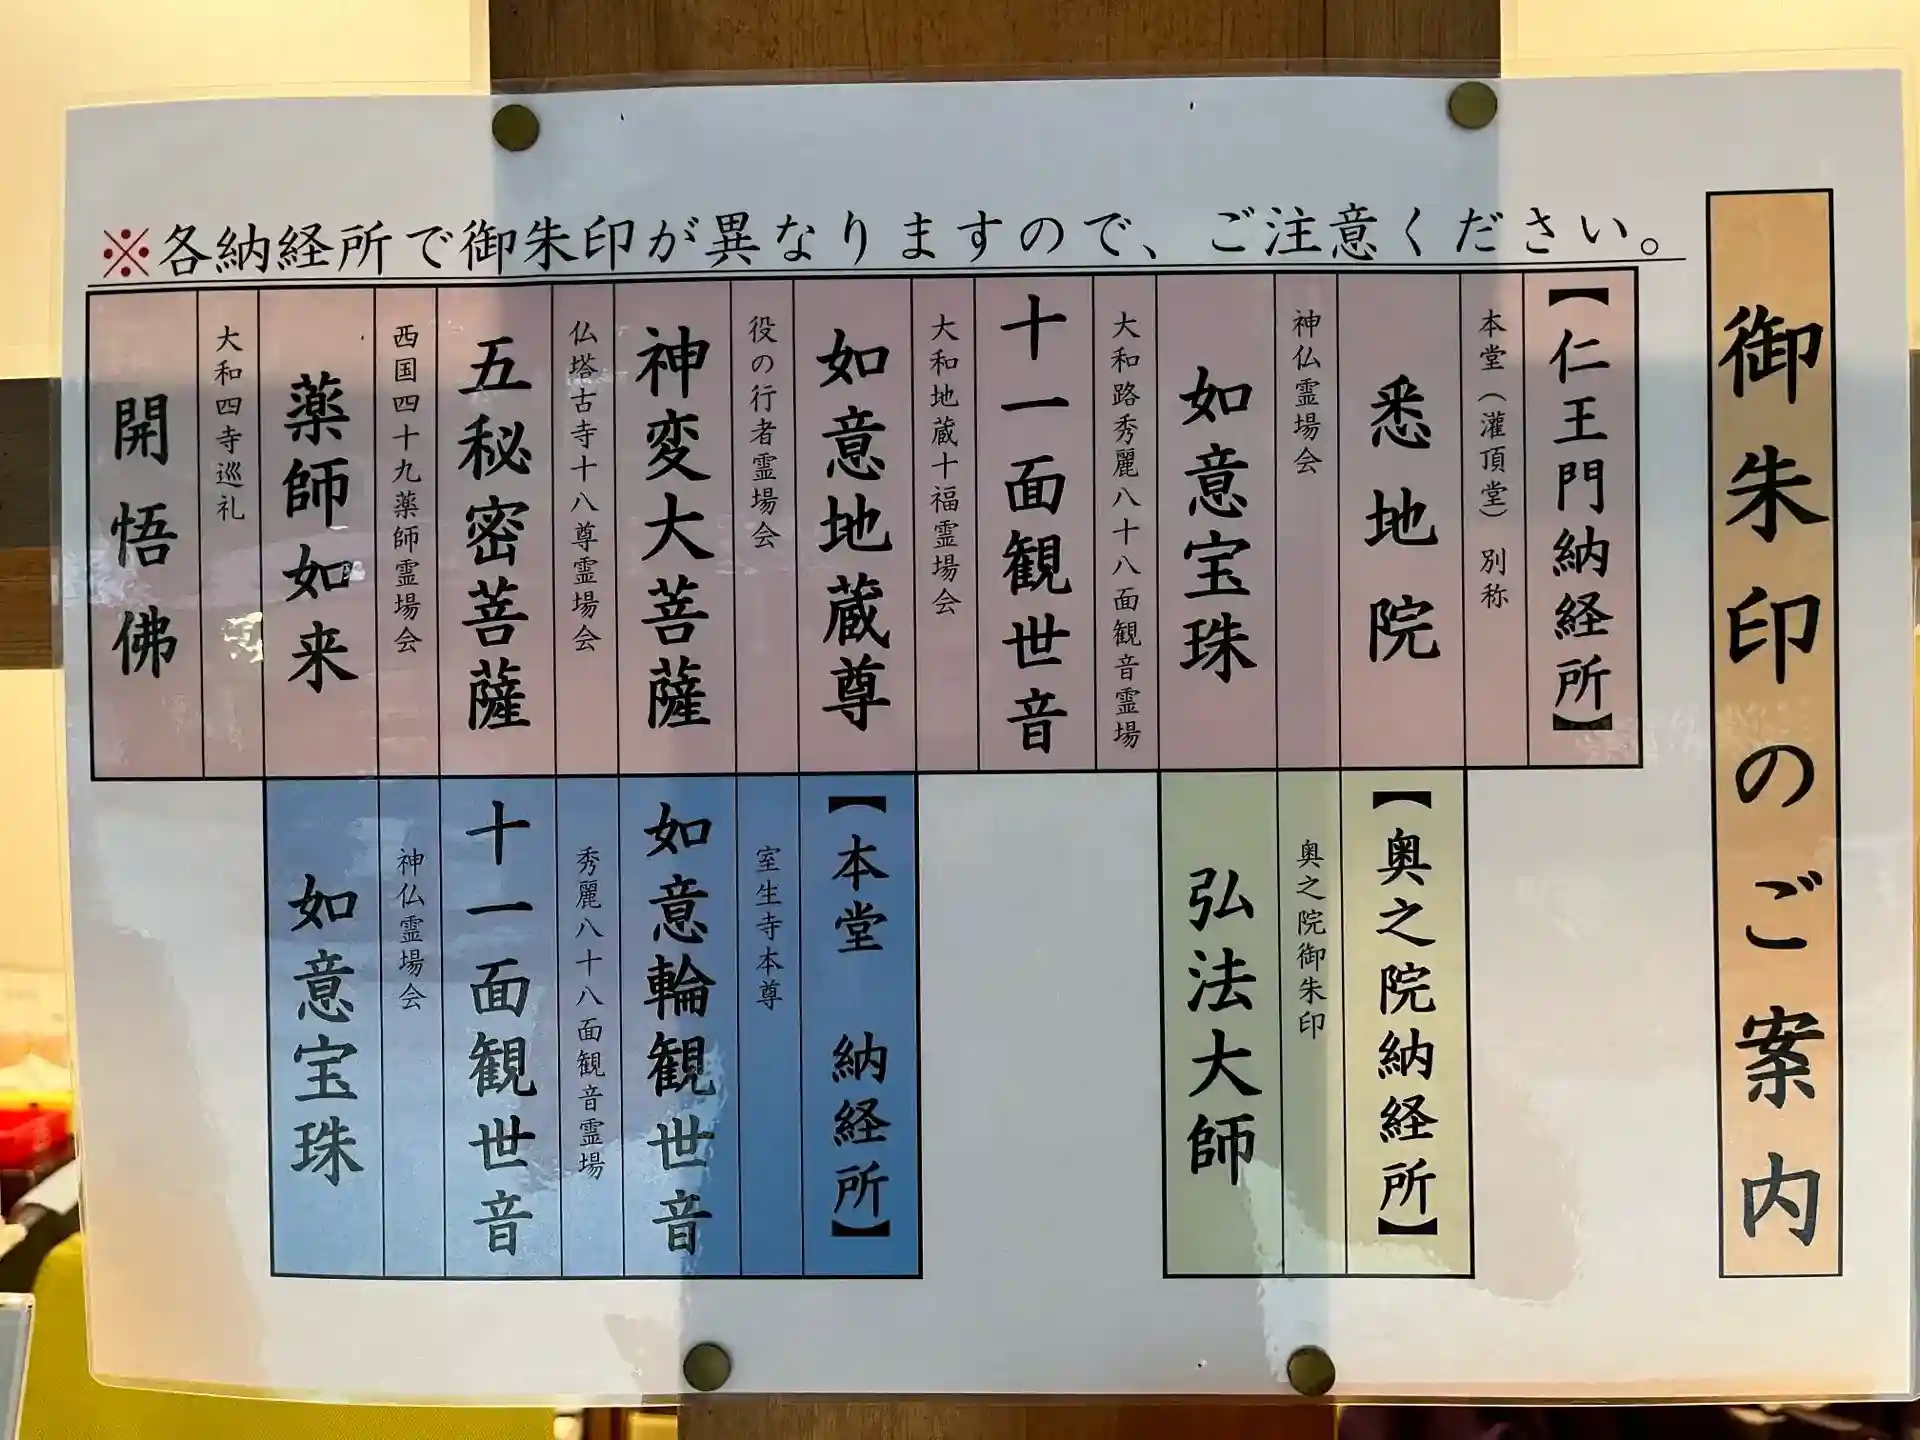 御朱印のご案内
※各納経所で御朱印が異なりますので、ご注意ください。
【仁王門納経所】
本堂（灌頂堂）別称
悉地院
神仏霊場会
如意宝珠
大和路秀麗八十八面観音霊場
十一面観世音
大和地蔵十福霊場会
如意地蔵尊
役の行者霊場会
神変大菩薩
仏塔古寺十八尊霊場会
五秘密菩薩
西国四十九薬師霊場会
薬師如来
大和四寺巡礼
開悟佛
【奥之院納経所】
奥之院御朱印
弘法大師
【本堂　納経所】
室生寺本尊
如意輪観世音
秀麗八十八面観音霊場
十一面観世音
神仏霊場会
如意宝珠